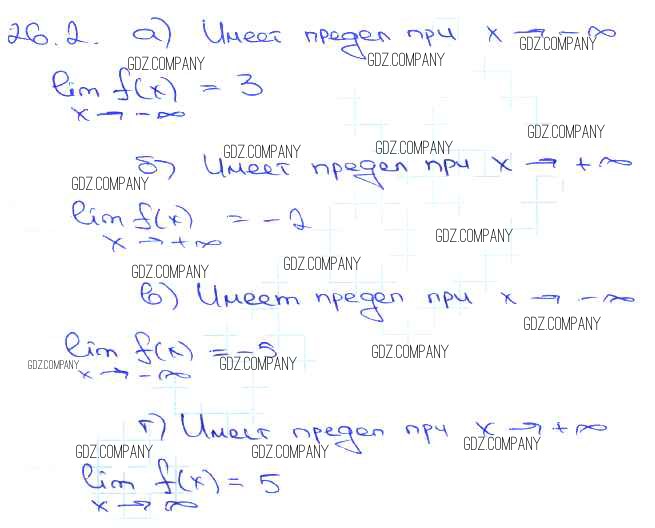 26.2. а) Имеет предел при x → -∞
GDZ.COMPANY
GDZ.COMPANY GDZ.COMPANY
lim f(x) = 3
x → -∞
GDZ.COMPANY
GDZ.COMPANY GDZ.COMPANY
б) Имеет предел при x → +∞
GDZ.COMPANY
lim f(x) = -2
x → +∞
GDZ.COMPANY
GDZ.COMPANY GDZ.COMPANY
в) Имеет предел при x → -∞
GDZ.COMPANY
lim f(x) = -5
GDZ.COMPANY GDZ.COMPANY GDZ.COMPANY
x → -∞
г) Имеет предел при x → +∞
GDZ.COMPANY GDZ.COMPANY GDZ.COMPANY
lim f(x) = 5
x → ∞